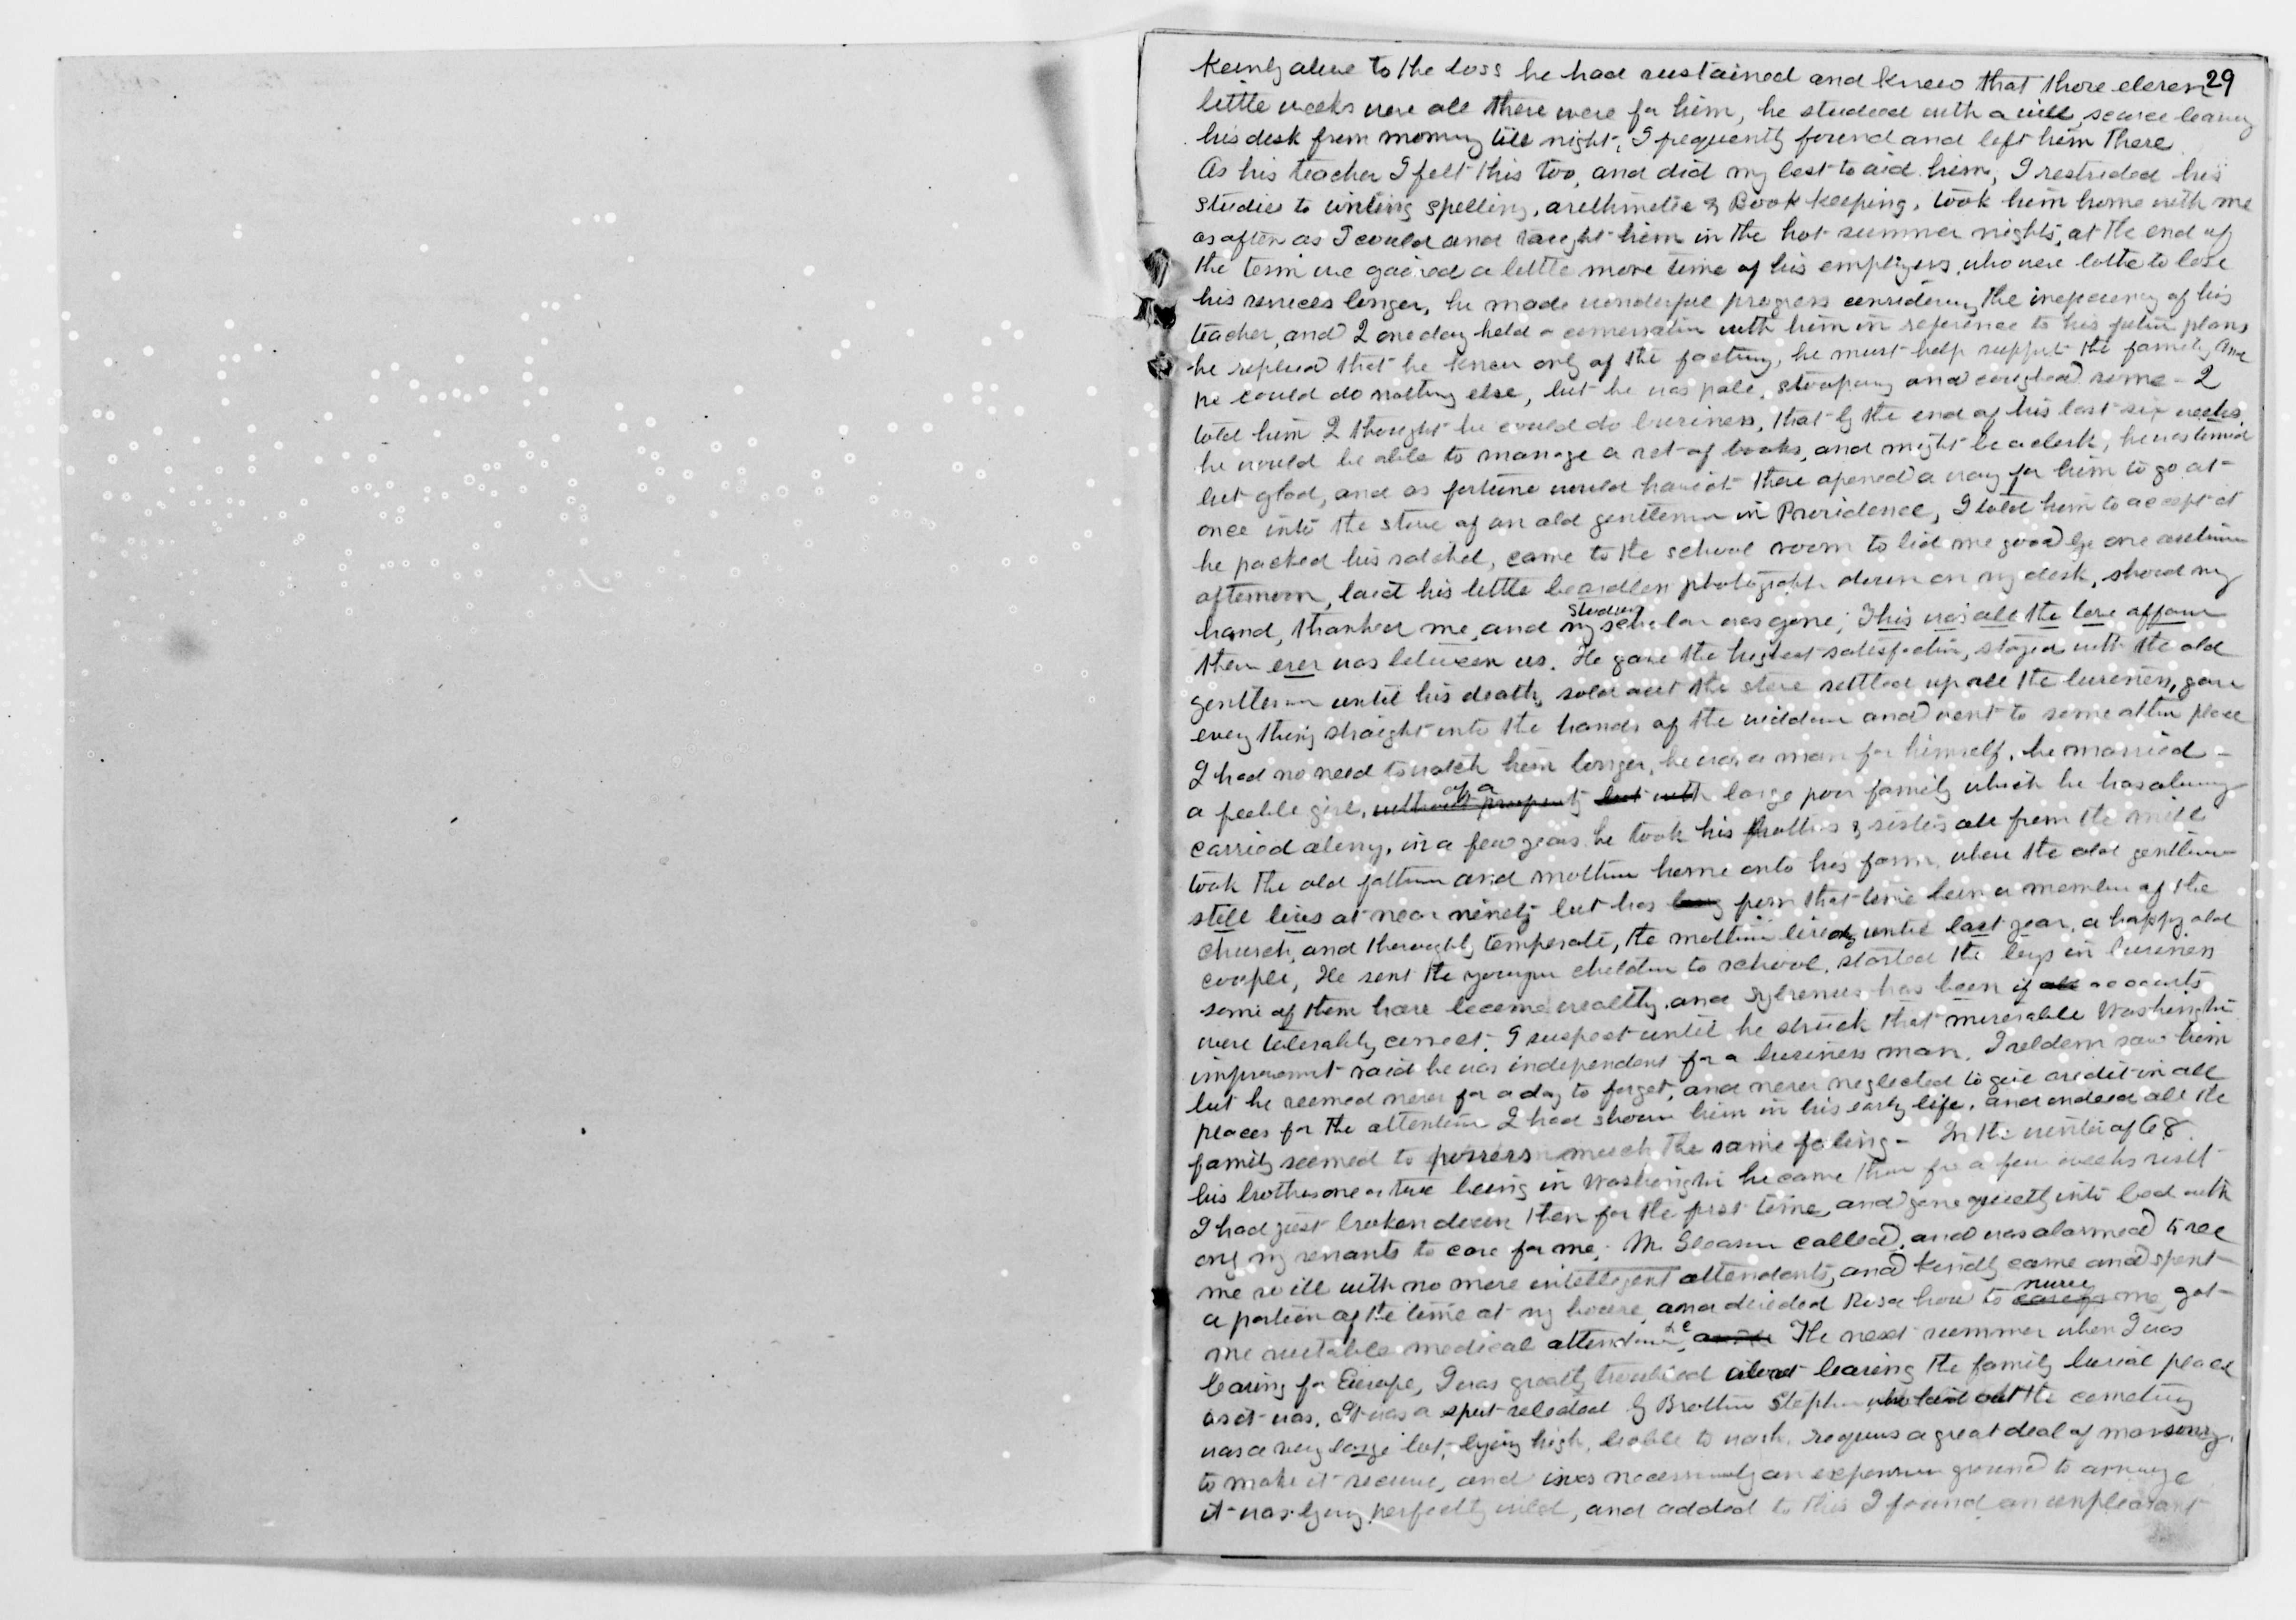 29
keenly alive to the loss he had sustained and knew that those eleven
little weeks were all there were for him, he studied with a will, scarce leaving
his desk from morning till night, I frequently found and left him there
As his teacher I felt this too, and did my best to aid him, I restricted his
studies to writing spelling, arithmetic & Book keeping, took him home with me
as often as I could and taught him in the hot summer nights, at the end of
the term we gained a little more time of his employers, who were lothe to lose
his services longer, he made wonderful progress considering the inefficiency of his
teacher, and I one day held a conversation with him in reference to his future plans
he replied that he knew only of the factory, he must help support the family and
he could do nothing else, but he was pale, stooping and coughed some - I
told him I thought he could do business, that by the end of his last six weeks
he would be able to manage a set of books, and might be a clerk, he was timid
but glad, and as fortune would have it there opened a way for him to go at
once into the store of an old gentleman in Providence, I told him to accept it
he packed his satchel, came to the school room to bid me good bye one autumn
afternoon, laid his little beardless photograph down on my desk, shook my
hand, thanked me, and my studious scholar was gone; This was all the love affair
there ever was between us. He gave the highest satisfaction, stayed with the old
gentleman until his death, sold out the store settled up all the business, gave
every thing straight into the hands of the widdow and went to some other place
I had no need to watch him longer, he was a man for himself, he married -
a feeble girl, without property but with of a large poor family which he has always
carried along, in a few years he took his brothers & sisters all from the mill
took the old father and mother home onto his farm, where the old gentleman
still lives at near ninety but has long from that time been a member of the
church, and thoroughly temperate, the mother lived until last year, a happy old
couple, He sent the younger children to school, started the boys in business
some of them have become wealthy, and Sylvenus has been if all accounts
were tolerably correct. I suspect until he struck that miserable Washington
improvement said he was independent for a business man. I seldom saw him
but he seemed never for a day to forget, and never neglected to give credit in all
places for the attention I had shown him in his early life, and indeed all the
family seemed to possess much the same feeling - In the winter of 68
his brothers one or two being in Washington he came there for a few weeks visit
I had just broken down then for the first time, and gone quietly into bed with
only my servants to care for me, Mr Gleason called, and was alarmed to see
me so ill with no more intelligent attendants, and kindly came and spent
a portion of the time at my house, and directed Rosa how to care for nurse me, got
me suitable medical attendance, and The next summer when I was
leaving for Europe, I was greatly troubled about leaving the family burial place
as it was. It was a spot selected by Brother Stephen who laid out the cemetery
was a very large lot, lying high, liable to wash, requires a great deal of masonry
to make it secure, and is necessarily an expensive ground to arrange
it was lying perfectly wild, and added to this I found an unpleasant